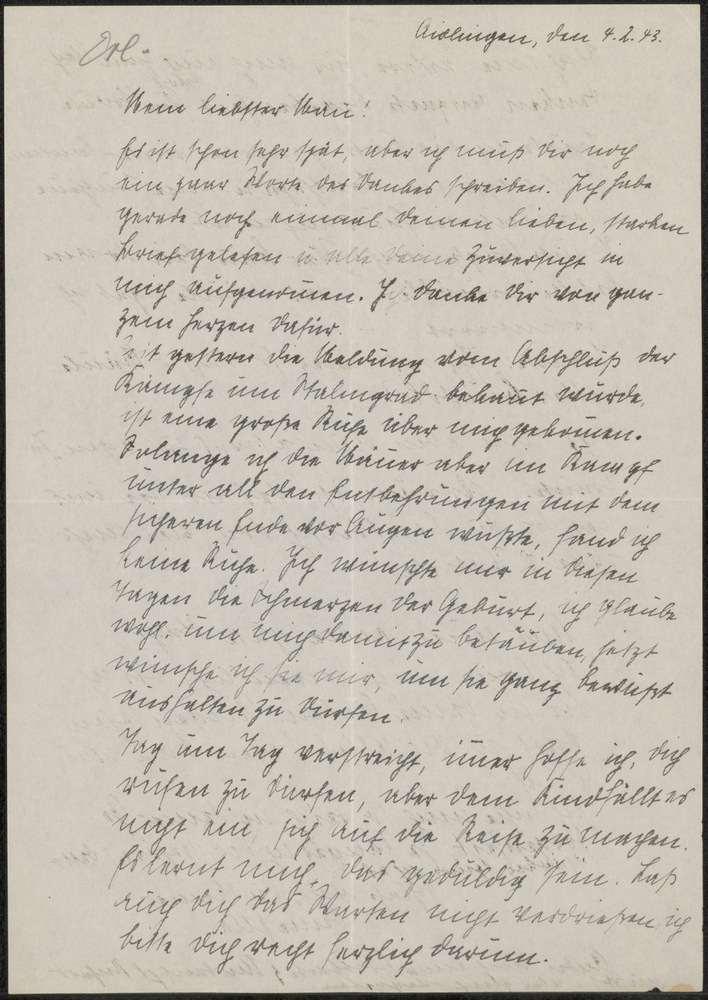 Erl.
Aidlingen, den 4.2.43.
Mein liebster Mann!
Es ist schon sehr spät, aber ich muß Dir noch
ein paar Worte des Dankes schreiben. Ich habe
gerade noch einmal Deinen lieben, starken
Brief gelesen u. alle Deine Zuversicht in
mich aufgenommen. Ich danke Dir von gan-
zem Herzen dafür.
Seit gestern die Meldung vom Abschluß der
Kämpfe um Stalingrad bekannt wurde,
ist eine große Ruhe über mich gekommen.
Solange ich die Männer aber im Kampf
unter all den Entbehrungen mit dem
sicheren Ende vor Augen wußte, fand ich
keine Ruhe. Ich wünschte mir in diesen
Tagen die Schmerzen der Geburt, ich glaube
wohl, um mich damit zu betäuben, jetzt
wünsche ich sie mir, um sie ganz bewußt
aushalten zu dürfen.
Tag um Tag verstreicht, immer hoffe ich, Dich
rufen zu dürfen, aber dem Kind fällt es
nicht ein, sich auf die Reise zu machen.
Es lernt mich, das geduldig sein. Laß
auch Dich das Warten nicht verdrießen, ich
bitte Dich recht herzlich darum.